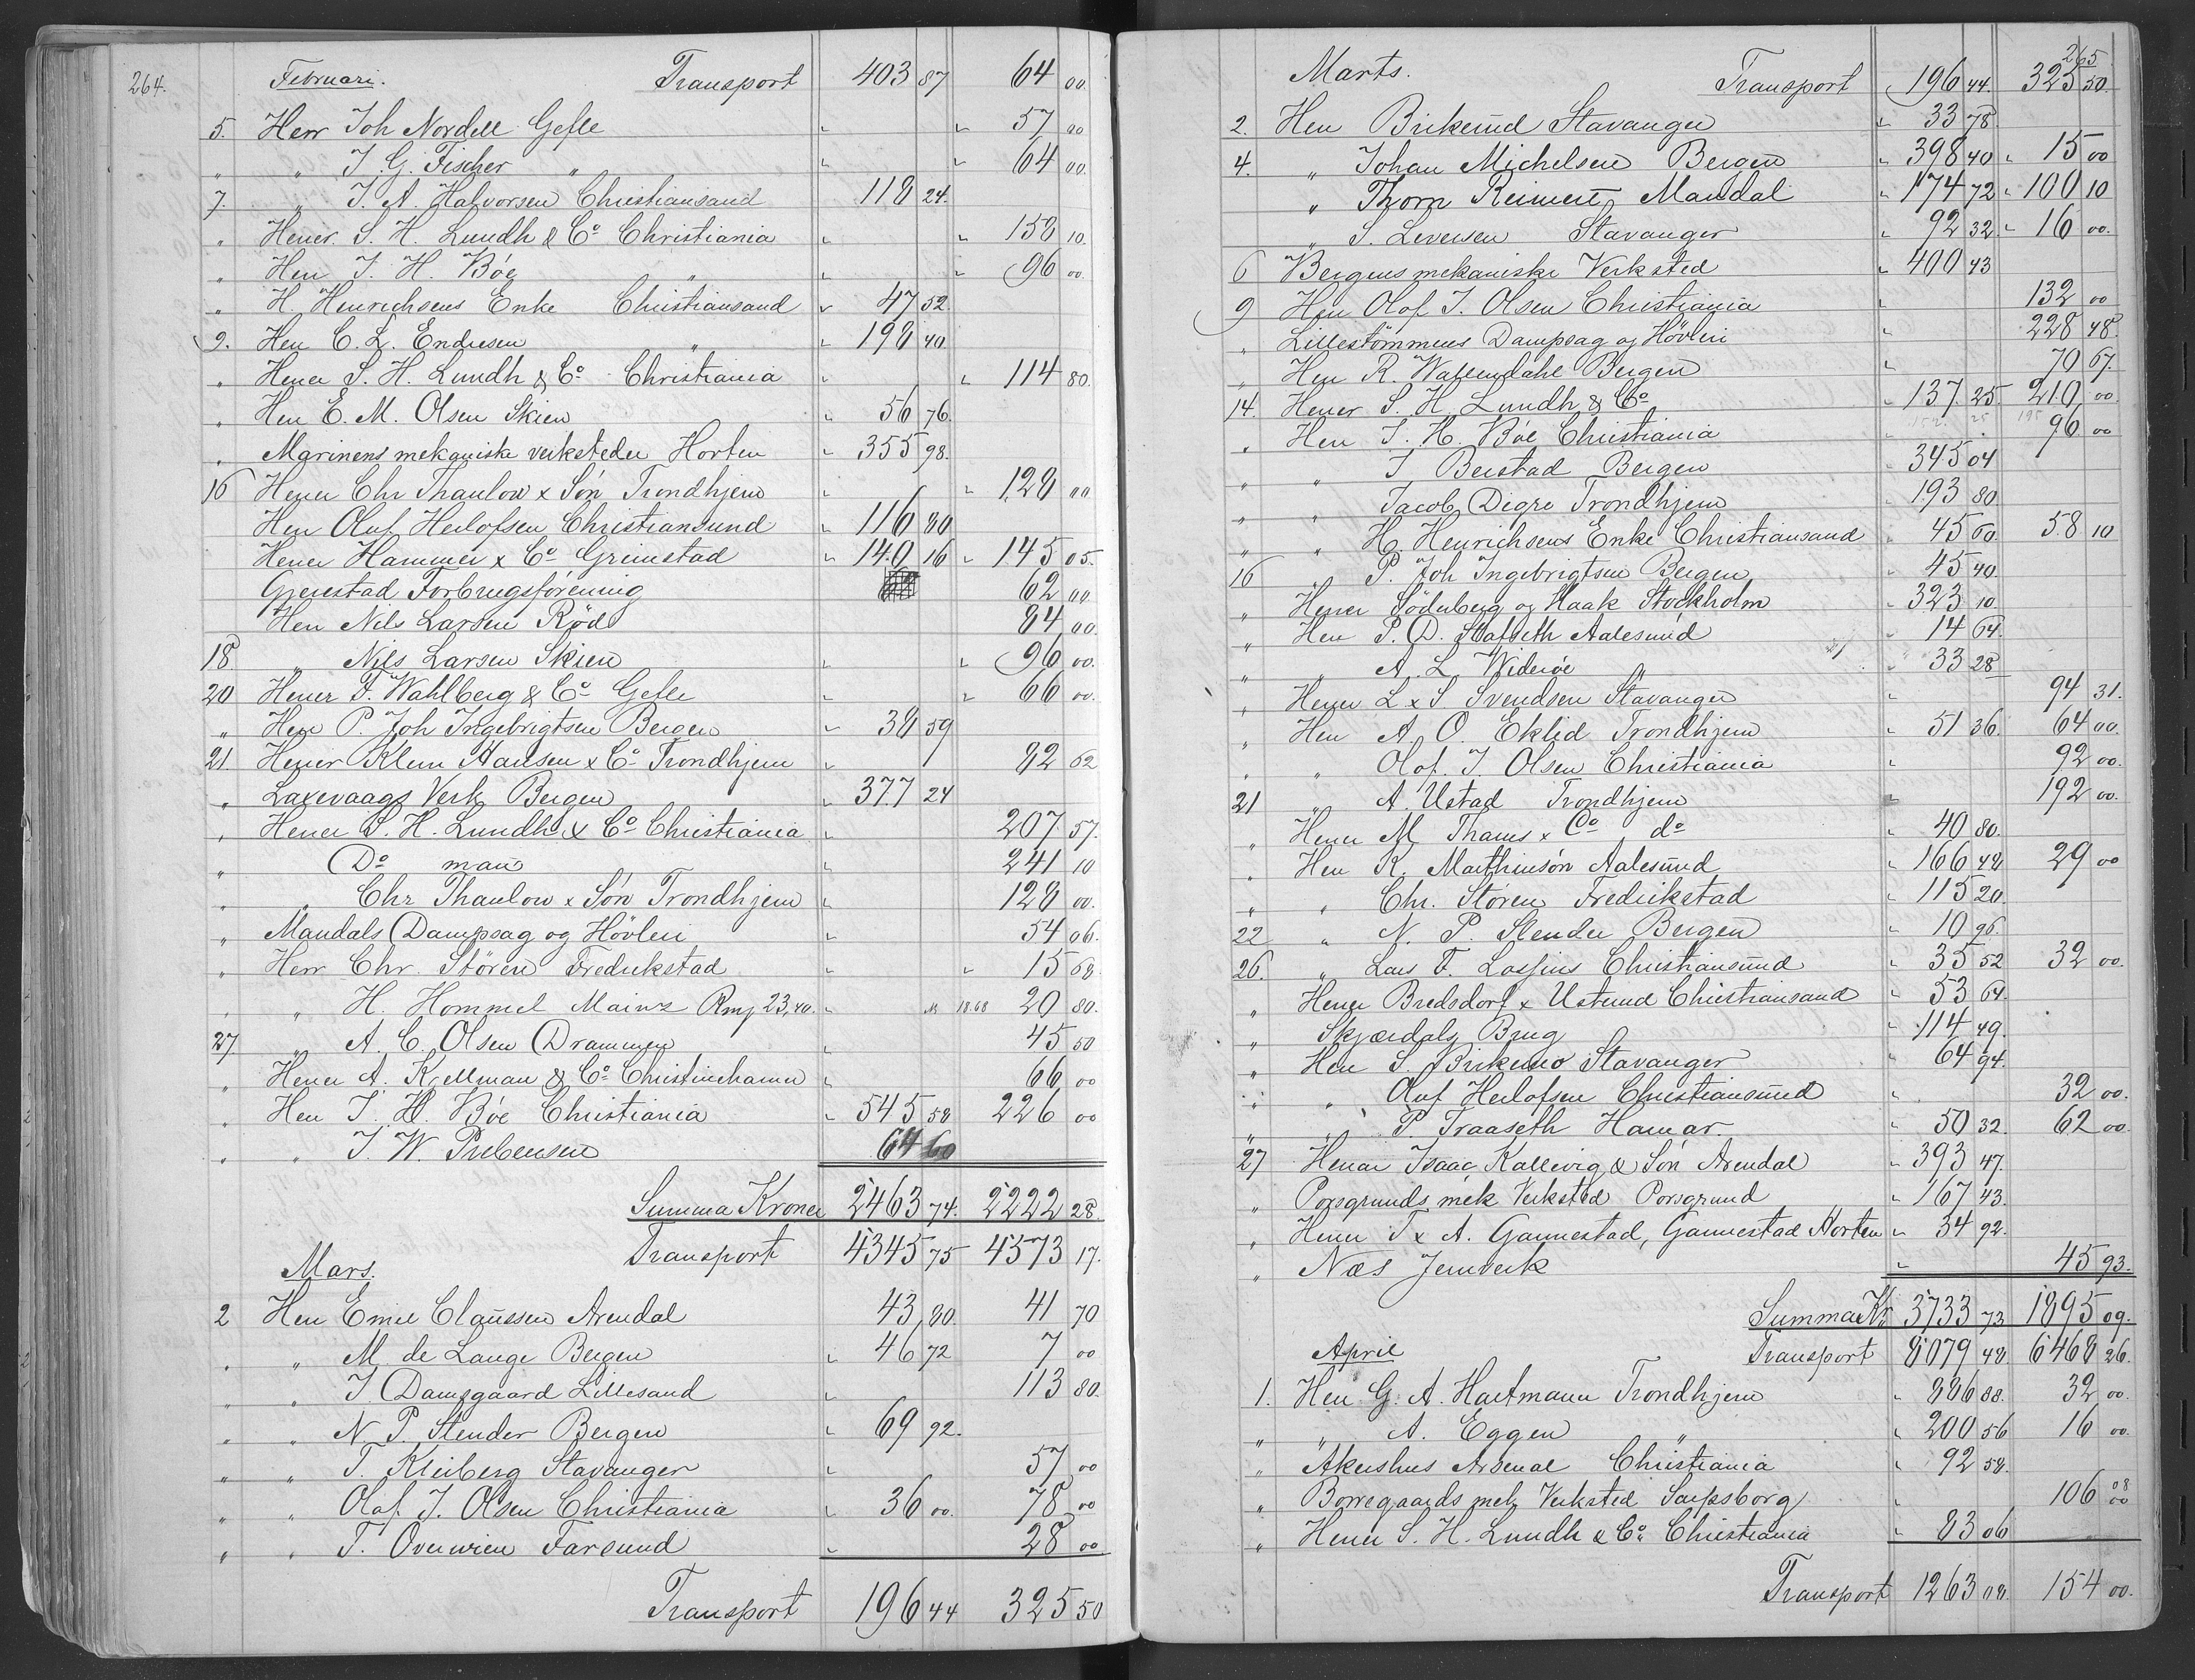 264.
Februari. Transport 403 87 64 00
5. Herr Joh Nordell Gefle " " 57 00
" " J. G. Fischer " " " 64 00
7. " J. A. Halvorsen Christiansand 118 24.
" Herrer S. H. Lundh & Co Christiania " " 150 10.
" Herr J. H. Böe " " " 96 00
" H. Henrichsens Enke Christiansand " 47 52.
9. Herr C. L. Endresen " " 198 40
" Herrer S. H. Lundh & Co Christiania " " 114 80.
" Herr E. M. Olsen Skien " 56 76.
" Marinens mekaniske verksteder Horten " 355 98.
16 Herrer Chr Thaulow x Sön Trondhjem " " 128 00
Herr Oluf Herlofsen Christiansund " 116 80
Herrer Hammer x Co Grimstad " 140 16 " 145 05.
Gjerestad Forbrugsförening 62 00
Herr Nils Larsen Röd 84 00.
18 " Nils Larsen Skien " " 96 00.
20 Herrer F. Wahlberg & Co Gefle " " 66 00.
" Herr P. Joh Ingebrigtsen Bergen " 38 59
21. Herrer Klem Hansen x Co Trondhjem " 82 62
" Laxevaags Verk Bergen " 377 24
" Herrer S. H. Lundh & Co Christiania " 207 57.
" Do man " 241 10
" " Chr Thaulow x Sön Trondhjem " 128 00.
" Mandals Dampsag og Hövleri " 54 06.
" Herr Chr. Stören Fredrikstad " " 15 68
" " H. Hommel Mainz Rm 23,40. " M 18.68 20 80.
27 " A. C. Olsen Drammen " 45 50
" Herrer A. Krellman & Co Christinehamn " 66 00
" Herr J. H. Böe Christiania " 545 58 226 00
" " J. W. Prebensen 64 60
Summa Kroner 2463 74. 2222 28.
Transport 4345 75 4573 17.
Mars.
2 Herr Emil Claussen Arendal 43 80. 41 70
" " M. de Lange Bergen " 46 72 7 00
" " J. Damsgaard Lillesand " 113 80.
" " N. P. Slender Bergen " 69 92.
" " T. Kleiberg Stavanger " 57 00
" " Olaf J. Olsen Christiania " 36 00. 78 00
" " T. Overwien Farsund " 28 00.
Transport 196 44 325 50
265
Marts. Transport 196 44. 325 50.
2. Herr Birkeund Stavanger " 33 78.
4. " Johan Michelsen Bergen " 398 40 " 15 00
" Thorn Reimert, Mandal " 174 72 " 100 10
" S. Leversen Stavanger " 92 32. " 16 00.
6 Bergens mekaniske Verksted " 400 43
9 Herr Olof J. Olsen Christiania " 132 00
" Lilleströmmens Dampsag og Hövleri " 228 48.
" Herr R. Wallendahl Bergen " 70 67.
14. Herrer S. H. Lundh & Co " 137 25 210 00.
" Herr J. H. Böe Christiania " 96 00
" " J Berstad Bergen " 345 04
" " Jacob Digre Trondhjem " 193 80
" " H. Henrichsens Enke Christiansand " 45 60. 58 10
16 " P. Joh Ingebrigtsen Bergen " 45 40.
" Herrer Söderberg og Haak Stockholm " 323 10.
" Herr P. D. Slafseth Aalesund " 14 64.
" " A. L Wideröe " 33 28
" Herrer L x S Svendsen Stavanger " 94 31.
" Herr A. O. Eklid Trondhjem " 51 36. 64 00.
" " Olof. J. Olsen Christiania " 92 00.
21 " A. Ustad Trondhjem " 192 00.
" Herrer M Thams x Co do " 40 80.
" Herr K. Marthinsön Aalesund " 166 48 29 00
" " Chr. Stören Fredrikstad " 115 20.
22 " N. P. Slender Bergen " 10 96.
26. " Lars F. Lossius Christiansund " 35 52 32 00.
" Herrer Bredsdorf x Ustrud Christiansand " 53 64.
" Skjærdals Brug " 114 49.
" Herr S. Birkemo Stavanger " 64 94.
" " Oluf Herlofsen Christiansund " 32 00.
" " P. Traaseth Hamar. " 50 32. 62 00.
27 Herrar Isaac Kallevig & Sön Arendal " 393 47.
" Porsgrunds mek Verksted Porsgrund " 167 43.
" Herrer T x A. Gannestad, Gannestad Horten " 34 92.
" Næs Jernverk " 45 93.
Summa Kr 3733 73 1895 09.
April Transport 8079 48 6468 26.
1. Herr G. A. Hartmann Trondhjem " 886 88. 32 00.
" " A. Eggen " " 200 56 16 00.
" Akershus Arsenal Christiania " 92 58.
" Borregaards mek Verksted Sarpsborg " 106 00
" Herrer S. H. Lundh & Co Christiania " 83 06
Transport 1263 08. 154 00.